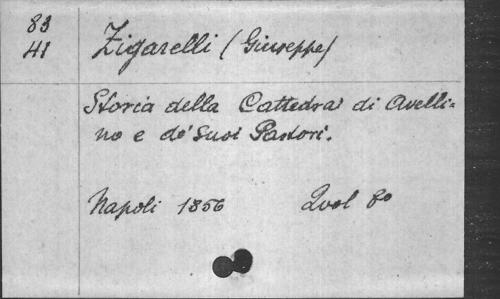 83
41
Zigarelli (Giuseppe)
Storia della Cattedra di Avelli-
no e de' suoi Pastori.
Napoli 1856 2 vol 8º